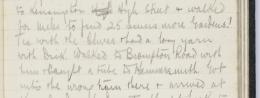 to Kensington High Street & walked
for miles to find 25 more Gardens!
Tea with the & had a long yarn
with Walked to Brompton Road with
him & caught a tube to Hammersmith. Got
into the wrong train there & arrived at